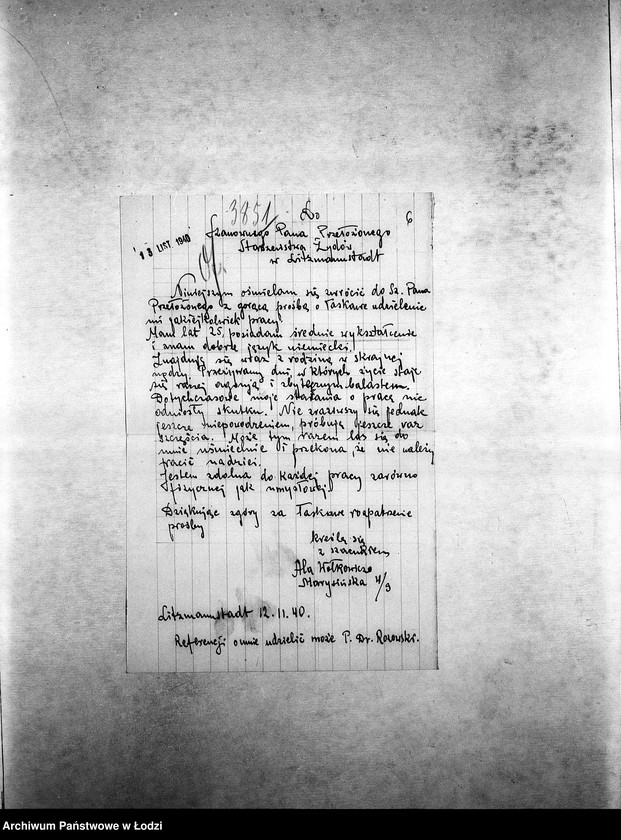 3851
Do
6
Szanownego Pana Przełożonego
13 LIST. 1940
Starszeństwa Żydów
w Litzmannstadt
Niniejszym ośmielam się zwrócić do Sz. Pana
Przełożonego z gorącą prośbą o łaskawe udzielenie
mi jakiejkolwiek pracy.
Mam lat 25, posiadam średnie wykształcenie
i znam dobrze język niemiecki.
Znajduję się wraz z rodziną w skrajnej
nędzy. Przeżywamy dni, w których życie staje
się raczej agonją i zbytecznym balastem.
Dotychczasowe moje starania o pracę nie
odniosły skutku. Nie zraziwszy się jednak
jeszcze niepowodzeniem, próbuję jeszcze raz
szczęścia. Może tym razem los się do
mnie uśmiechnie i przekona, że nie należy
tracić nadziei.
Jestem zdolna do każdej pracy zarówno
fizycznej jak umysłowej.
Dziękując zgóry za łaskawe rozpatrzenie
prośby
kreślę się
z szacunkiem
Ala Wołkowicz
Marysińska 4/9
Litzmannstadt 12.11.40.
Referencji o mnie udzielić może P. Dr.
Archiwum Państwowe w Łodzi